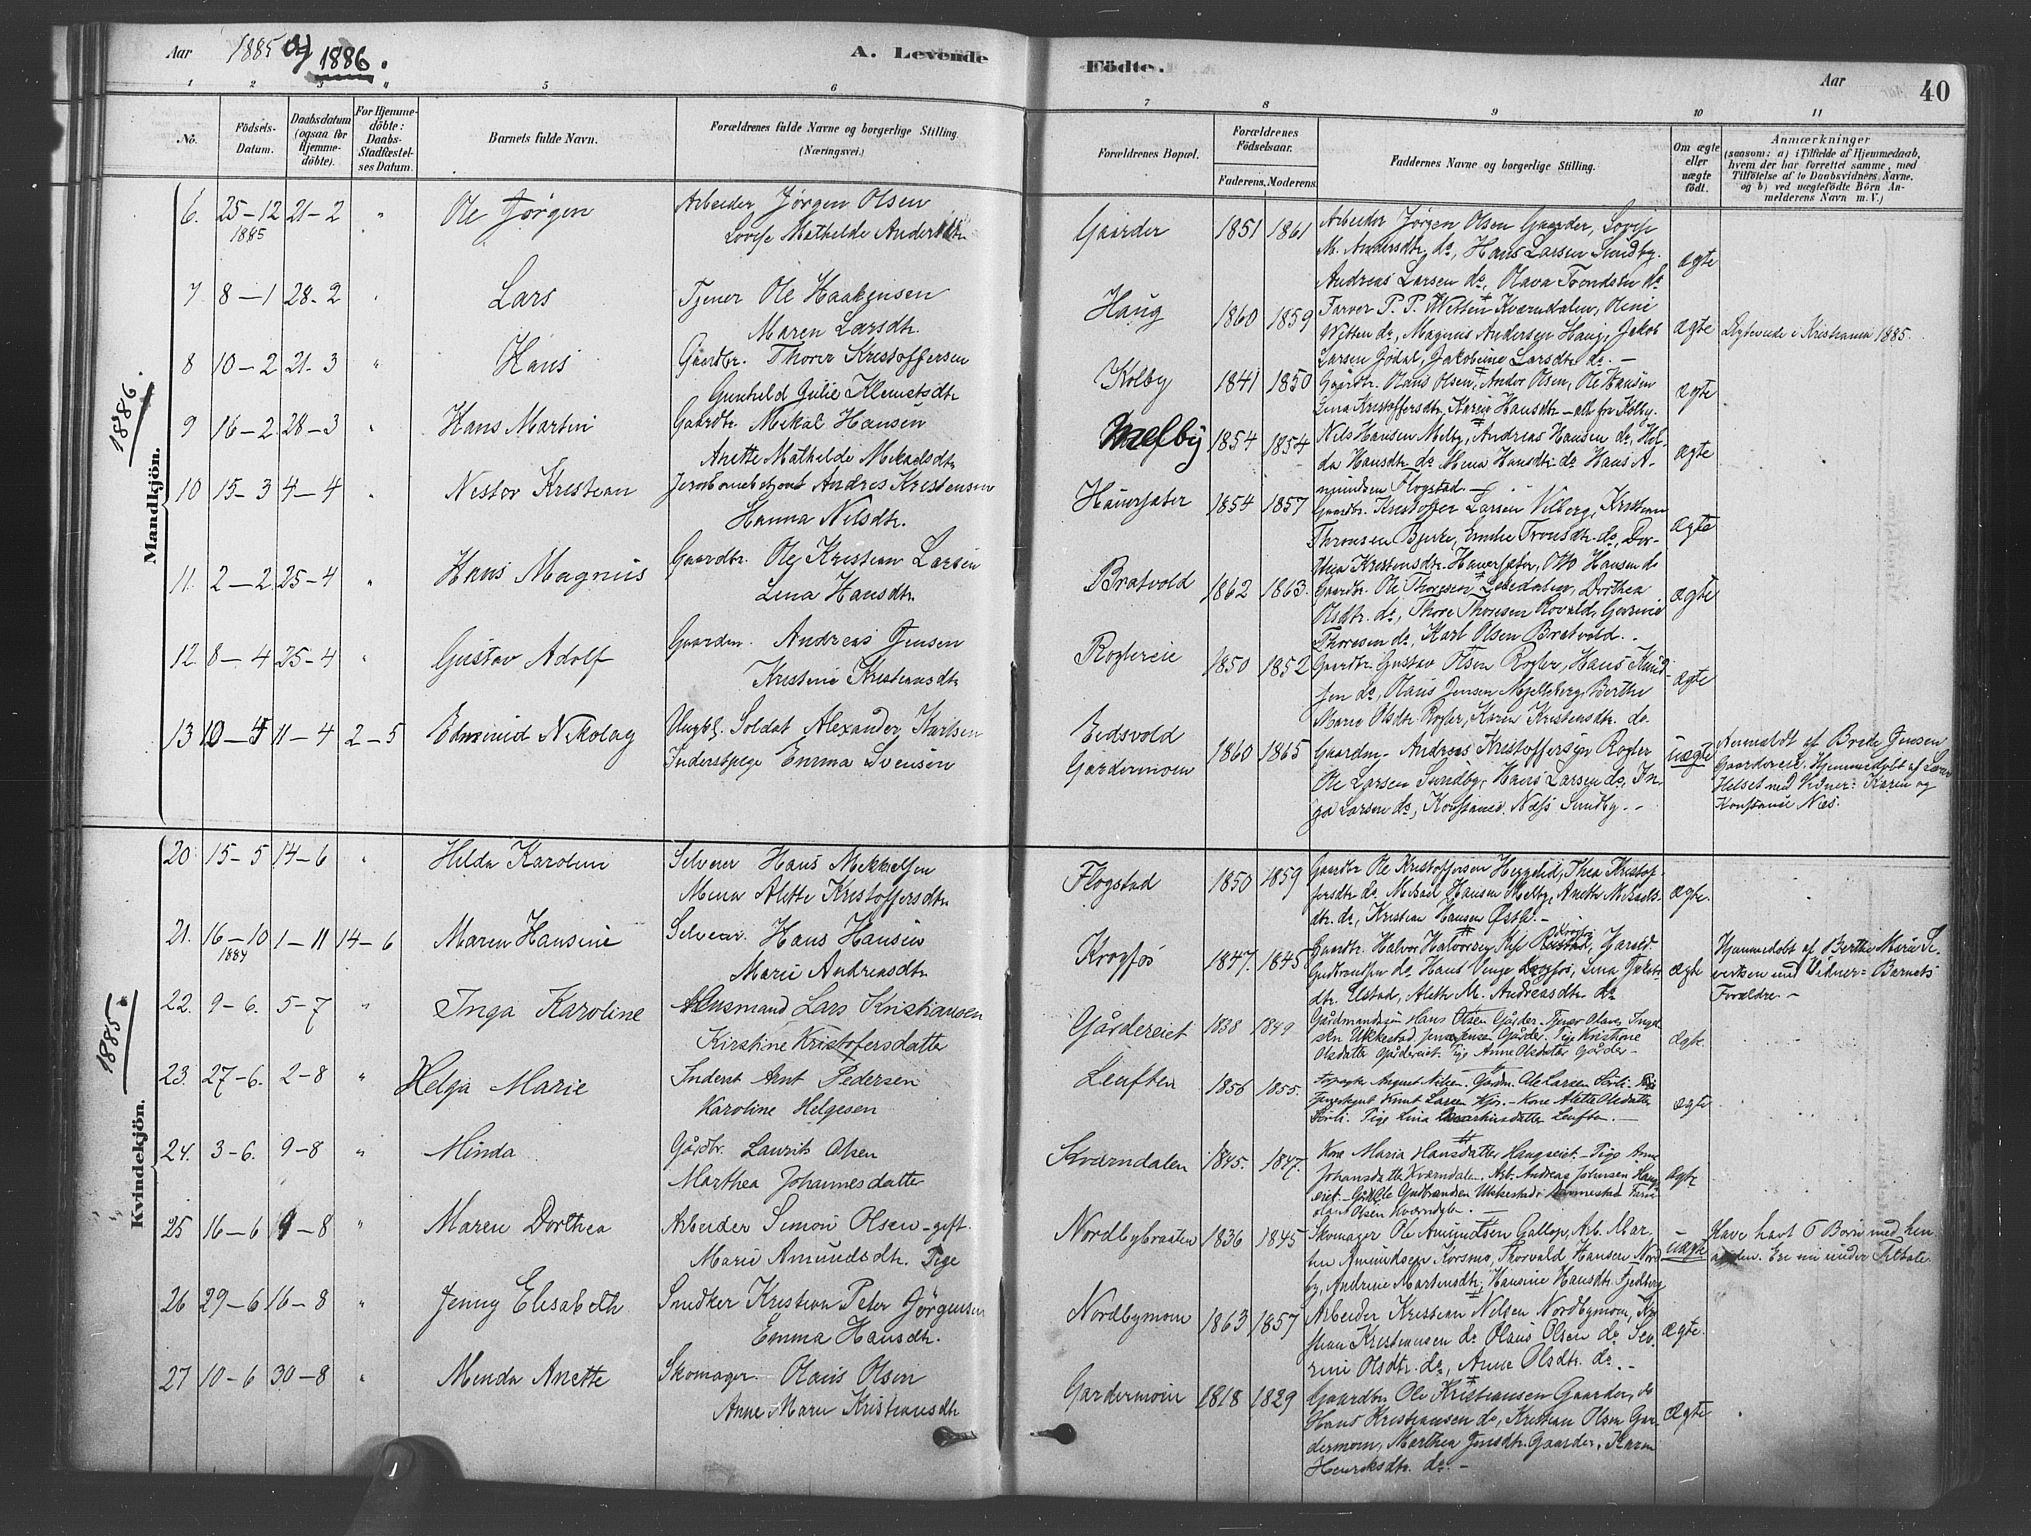 Aar 1885 og 1886. A. Levende Födte. Aar 40
1 2 3 4 5 6 7 8 9 10 11
No. Födsels-Datum. Daabsdatum (ogsaa for Hjemmedöbte). For Hjemmedöbte: Daabs-Stadfæstelses Datum. Barnets fulde Navn. Forældrenes fulde Navne og borgerlige Stilling. (Næringsvei.) Forældrenes Bopæl. Forældrenes Födselsaar. Faderens. Moderens. Faddernes Navne og borgerlige Stilling. Om ægte eller uægte födt. Anmærkninger (saasom: a) i Tilfælde af Hjemmedaab, hvem der har forrettet samme, med Tilföielse af to Daabsvidners Navne, og b) ved uægtefödte Börn Anmelderens Navn m. V.)
1886.
Mandkjön.
6. 25-12 1885 21-2 " Ole Jørgen
Arbeider Jørgen Olsen
Lovise Mathilde Andersdtr
Gaarder 1851 1861
Arbeider Jørgen Olsen Gaarder, Lovise
M. Andersdtr. do, Hans Larsen Sundby.
Andreas Larsen do, Olava Trondsen do
ægte
7 8-1 28-2 " Lars
Tjener Ole Haakensen
Maren Larsdtr.
Haug 1860 1859
Farver P. P. Witten Kværndalen, Oline
Witten do, Magnus Andersen Haug, Jakob
Larsen Jødal, Jakobine Larsdtr do. -
ægte
Ægteviede i Kristiania 1885.
8 10-2 21-3 " Hans
Gaardbr. Thorer Kristoffersen
Gunhild Julie Klemetsdtr
Kolby 1841 1850
Gaardbr. Olaus Olsen, Andor Olsen, Ole Hansen
Lina Kristoffersdtr, Karen Hansdtr - alle fra Kolby.
ægte
9 16-2 28-3 " Hans Martin
Gaardbr. Mikal Hansen
Anette Mathilde Mikaelsdtr
Melby 1854 1854
Nils Hansen Melby, Andreas Hansen do, Hel-
da Hansdtr do Mina Hansdtr do Hans A-
mundsen Flogstad. -
ægte
10 15-3 4-4 " Nestor Kristian
Jernbanebetjent Andres Kristensen
Hanna Nilsdtr.
Hauersæter 1854 1857
Gaardbr. Kristoffer Larsen Vilberg, Kristian
Thronsen Bjerke, Emilie Tronsdtr. do, Dor-
thea Kristensdtr. Hauersæter, Otto Hansen do
ægte
11. 2-2 25-4 " Hans Magnus
Gaardbr. Ole Kristian Larsen
Lina Hansdtr.
Bratvold 1862 1863.
Gaardbr. Ole Thoresen, Dorthea
Olsdtr. do, Thore Thoresen Rovald,
Thoresen do, Karl Olsen Bratvold. -
ægte
12. 8-4 25-4 " Gustav Adolf
Gaardm. Andreas Jensen
Kristine Kristiansdtr
Roglereie 1850 1852
Gaardbr. Gustav Olsen Rogler, Hans Knud-
sen do, Olaus Jensen Mjelleberg, Berthe
Marie Olsdtr Rogler, Karen Kristensdtr. do.
ægte
13 10-4 11-4 2-5 Edmund Nikolay
Ungk. Soldat Alexander Karlsen
Inderstpige Emma Svensen
Eidsvold
Gardermoen 1860 1865
Gaardm. Andreas Kristoffersen Rogler
Ole Larsen Sundby, Hans Larsen do, In-
ga Larsen do, Konstanse Næss Sundby. -
uægte
Anmeldt af Brede Jensen
Gaardereie. Hjemmedøbt af
Helset med Vidner: Karen og
Konstanse Næs.
1885.
Kvindekjön.
20 15-5 14-6 " Hilda Karoline
Selveier Hans Mikkelsen
Mina Alette Kristoffersdtr.
Flogstad 1850 1859
Gaardbr Ole Kristoffersen Heggelid, Thea Kristof-
fersdtr. do, Mikael Hansen Melby, Anette Mikaels-
dtr. do, Kristian Hansen Østby. -
ægte.
21. 16-10 1884 1-11 14-6 Maren Hansine
Selveier Hans Hansen
Marie Andreasdtr.
Krogfos 1847. 1845
Gaardbr. Halvor Halvorsen, Harald
Gudbrandsen do, Hans Krogfos, Lina
dtr. Ulstad, Alethe M. Andreasdtr do
ægte
Hjemmedøbt af Berthe Marie Si-
versen med Vidner: Barnets
Forældre -
22. 9-6. 5-7 " Inga Karoline
Husmand Lars Kristiansen
Kirstine Kristofersdatter
Gårdereiet 1838 1849
Gårdmandssøn Hans Olsen Gårder. Tjener Olaves Ingel-
sen Ukkestad. Jens Jensen Gårder. Pige Kristine
Olsdatter Gårdereiet. Pige Anne Olsdatter Gårder -
ægte.
23. 27-6. 2-8 " Helga Marie
Inderst Arnt Pedersen
Karoline Helgesen
Leuften 1856 1855.
August Nilsen. Gårdm. Ole Larsen Sørli.
Knut Larsen. Kone Alette Olsdatter
Sørli. Pige Lina Leuften. -
ægte
24. 3-6. 9-8 " Minda
Gårdbr. Laurits Olsen
Marthea Johannesdatter
Kværndalen 1845. 1847.
Kone Maria Hansdatter Haugseiet - Pige Anne
Johansdatter Kværndalen. Arb. Andreas Johansen Haug-
seiet - Ole Gudbrandsen
Olsen Kværndalen. -
ægte
25 16-6 9-8 " Maren Dorthea
Arbeider Simon Olsen - gift.
Marie Amundsdtr. Pige
Nordbybraaten 1836 1845
Skomager Ole Amundsen Gallop, Arb. Mar-
tin Amundsen Korsmo, Thorvald Hansen Nord-
by, Andrine Martinsdtr, Hansine Hansdtr Fjedberg
uægte
Have havt Børn med hen-
anden. Er nu under Tiltale.
26 29-6 16-8 " Jenny Elisabeth
Snedker Kristian Peter Jörgensen
Emma Hansdtr.
Nordbymoen 1863 1857
Arbeider Kristian Nilsen Nordbymoen,
Kristiansen do Olaus Olsen do Seve-
rine Olsdtr. do, Anne Olsdtr. do. -
ægte.
27 10-6 30-8 " Minda Anette
Skomager Olaus Olsen
Anne Marie Kristiansdtr
Gardermoen 1818 1829
Gaardbr. Ole Kristiansen Gaarder, do
Hans Kristiansen do, Kristian Olsen Gar-
dermoen, Marthea Jensdtr. Gaarder, Karen
Henriksdtr. do. -
ægte